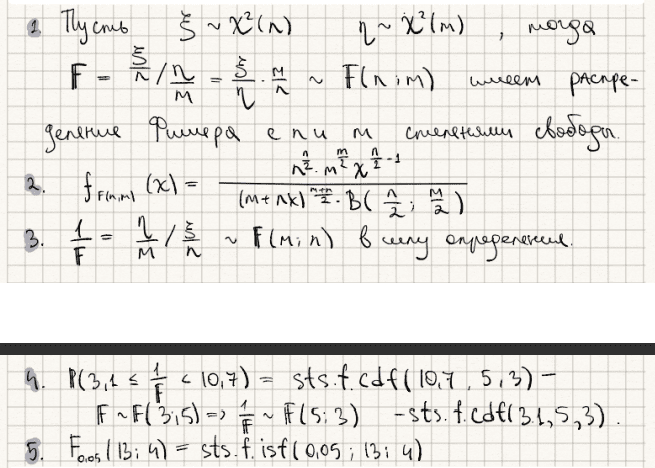 1. Пусть ξ ~ χ²(n) η ~ χ²(m) , тогда
F = ξ/n / η/m = ξ/η · m/n ~ F(n; m) имеет распре-
деление Фишера с n и m степенями свободы.
2. f_{F(n;m)} (x) = n^{n/2} · m^{m/2} x^{n/2 - 1} / (m + nx)^{(m+n)/2} · B( n/2 ; m/2 )
3. 1/F = η/m / ξ/n ~ F(m; n) в силу определения.
4. P(3,1 ≤ 1/F < 10,7) = sts.f.cdf(10,7 , 5, 3) –
F ~ F(3;5) => 1/F ~ F(5; 3) -sts.f.cdf(3.1, 5, 3) .
5. F_{0,05} (13; 4) = sts.f.isf(0,05 ; 13; 4)